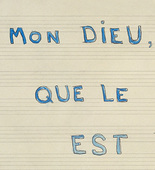 MON DIEU,
QUE LE
EST